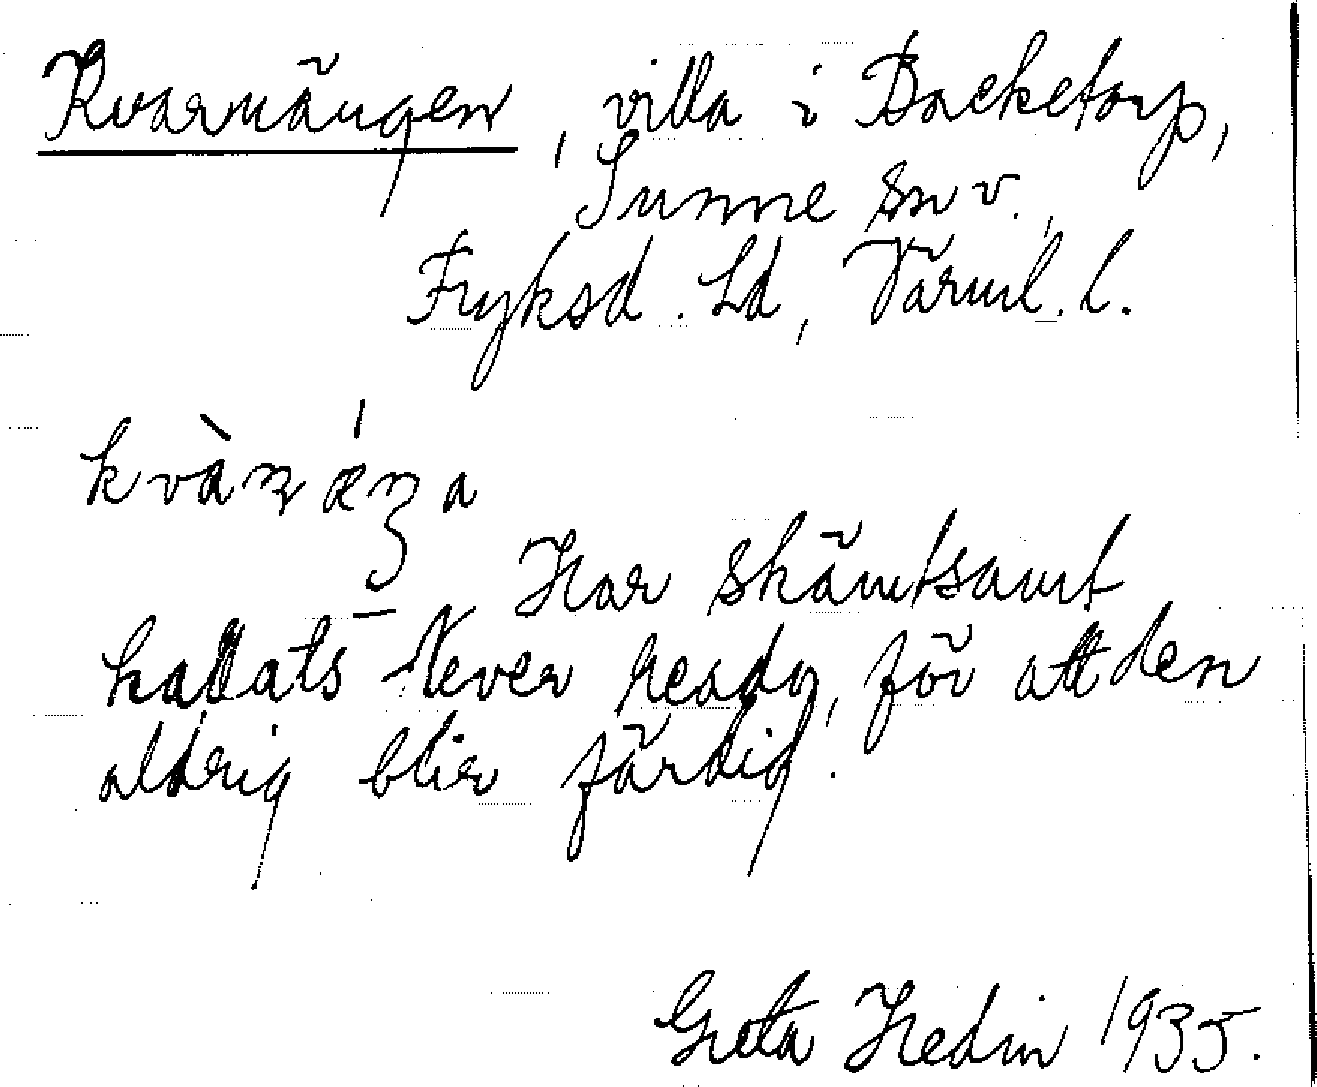 Kvarnängen, villa i Backetorp,
Sunne sn v.,
Fryksd. hd, Värml. l.
Har skämtsamt
kallats Never ready, för att den
aldrig blir färdig.
Greta Hedin 1935.